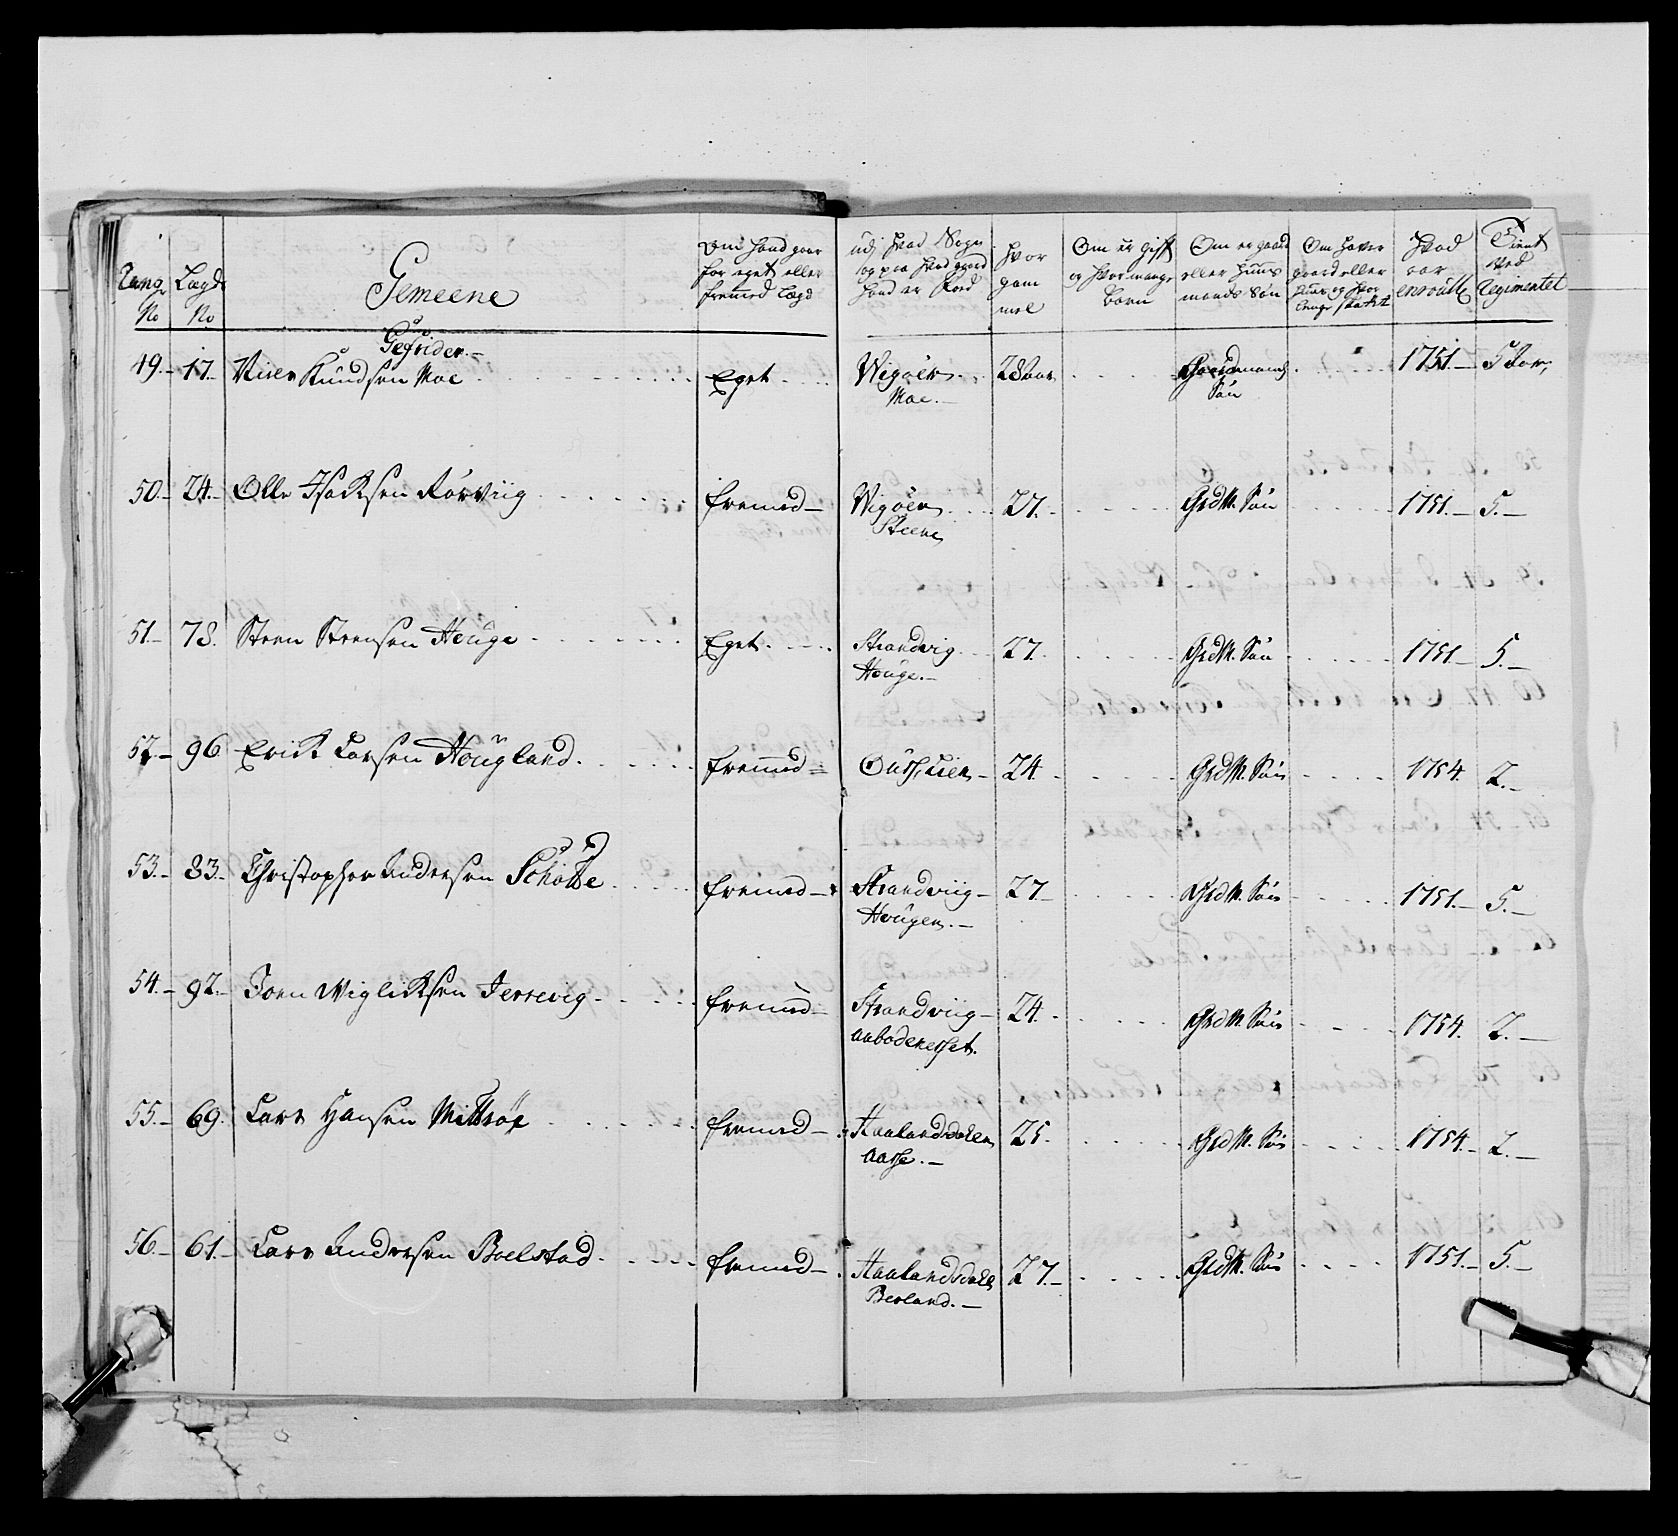 Rang No | Lægds No | Gemeene | Om hand gaar for eget eller fremmed Lægd | udj hvad Sogn og paa hvad gaard hand er Fød | Hvor gammel | Om er gift og hvor mange Børn | Om er gaard eller Huusmands Søn | Om haver gaard eller Huus og hvor længe | Hvad aar enroullt | Tient ved Regimentet
Gefrider.-
49.- 17.- Niels Knudsen Moe Eget Wigøer Moe.- 28 Aar Gaardmands Søn 1751.- 5 Aar,
50.- 24.- Olle Isaksen Rørviig fremed- Wigøer Steene 27.- GrdM. Søn 1751.- 5.-
51.- 78. Steen Steensen Houge Eget Strandvig Houge.- 27. GrdM. Søn 1751.- 5.-
52.- 96 Erick Larsen Hougland. fremmed- 24. GrdM. Søn 1754. 2.-
53.- 83.- Christopher Andersen Schøtte fremed- Strandviig- Hougen.- 27.- GrdM. Søn 1751.- 5.-
54.- 92.- Joen Wigliksen Jerrevig. fremed- Strandviig- 24. GrdM. Søn 1754. 2.-
55.- 69. Lars Hansen fremed- Haalandsdalen Aasse.- 25. GrdM. Søn 1754.- 2.-
56.- 61.- Lars Andersen Boelstad. fremed- Haalandsdale Berland.- 27.- GrdM. Søn 1751.- 5.-